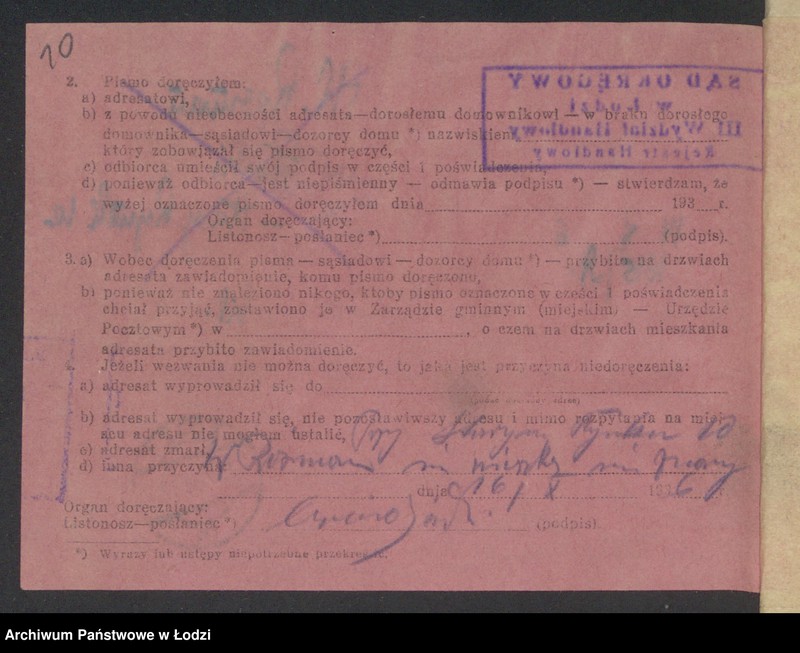 10
2. Pismo doręczyłem:
a) adresatowi,
b) z powodu nieobecności adresata—dorosłemu domownikowi — w braku dorosłego
domownika—sąsiadowi—dozorcy domu *) nazwiskiem
który zobowiązał się pismo doręczyć,
c) odbiorca umieścił swój podpis w części 1 poświadczenia,
d) ponieważ odbiorca—jest niepiśmienny — odmawia podpisu *) — stwierdzam, że
wyżej oznaczone pismo doręczyłem dnia 193 r.
Organ doręczający:
Listonosz—posłaniec *) (podpis).
3. a) Wobec doręczenia pisma — sąsiadowi — dozorcy domu *) — przybito na drzwiach
adresata zawiadomienie, komu pismo doręczono,
b) ponieważ nie znaleziono nikogo, ktoby pismo oznaczone w części 1 poświadczenia
chciał przyjąć, zostawiono je w Zarządzie gminnym (miejskim) — Urzędzie
Pocztowym *) w , o czem na drzwiach mieszkania
adresata przybito zawiadomienie.
Jeżeli wezwania nie można doręczyć, to jaka jest przyczyna niedoręczenia:
a) adresat wyprowadził się do
b) adresat wyprowadził się, nie pozostawiwszy adresu i mimo rozpytania na miej-
scu adresu nie mogłem ustalić, Przy 10
c) adresat zmarł,
d) inna przyczyna: nie nie
dnia 16/X 1936 r.
Organ doręczający:
Listonosz—posłaniec *) (podpis).
*) Wyrazy lub ustępy niepotrzebne przekreślić.
SĄD OKRĘGOWY
w Łodzi
III Wydział Handlowy
Rejestr Handlowy
Archiwum Państwowe w Łodzi